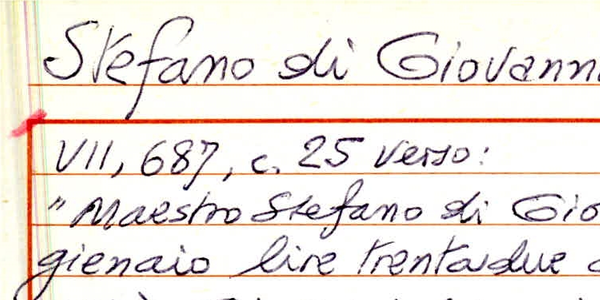 Stefano di Giovanni
VII, 687, c. 25 verso:
"Maestro Stefano di Gio
gienaio lire trentadue